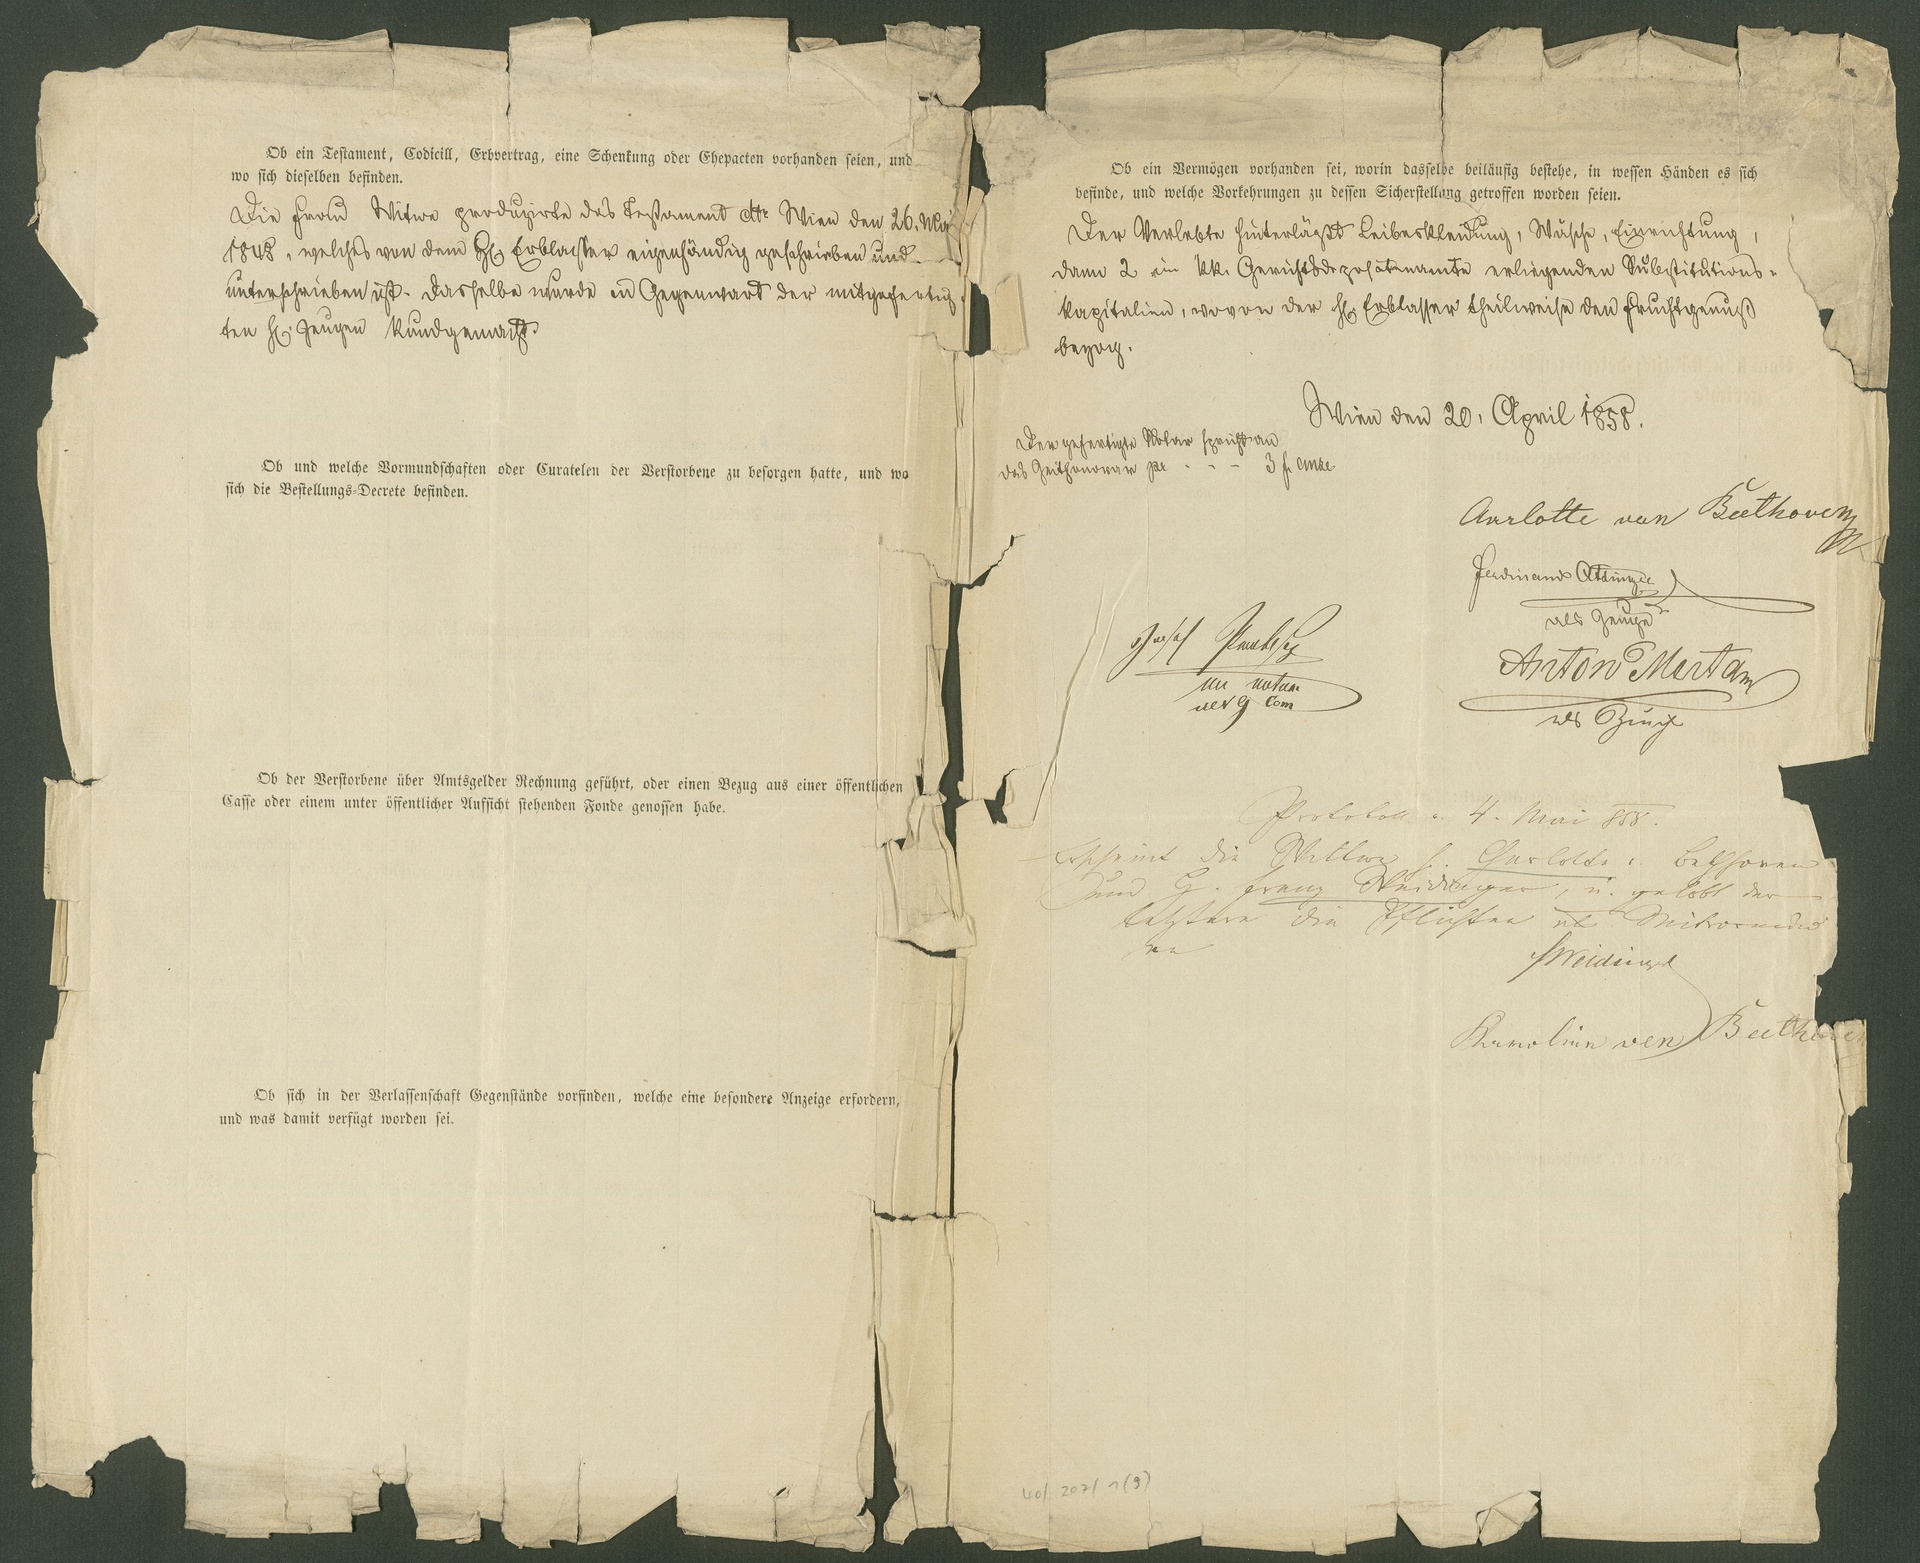 Ob ein Testament, Codicill, Erbvertrag, eine Schenkung oder Ehepacten vorhanden seien, und
wo sich dieselben befinden.
Die Frau Witwe produzirte das Testament dto Wien den 26. Mai
1848, welches von dem H. Erblasser eigenhändig geschrieben und
unterschrieben ist. Dasselbe wurde in Gegenwart der mitgefertig
ten H. Zeugen kundgemacht.
Ob und welche Vormundschaften oder Curatelen der Verstorbene zu besorgen hatte, und wo
sich die Bestellungs-Decrete befinden.
Ob der Verstorbene über Amtsgelder Rechnung geführt, oder einen Bezug aus einer öffentlichen
Casse oder einem unter öffentlicher Aufsicht stehenden Fonde genossen habe.
Ob sich in der Verlassenschaft Gegenstände vorfinden, welche eine besondere Anzeige erfordern,
und was damit verfügt worden sei.
Ob ein Vermögen vorhanden sei, worin dasselbe beiläufig bestehe, in wessen Händen es sich
befinde, und welche Vorkehrungen zu dessen Sicherstellung getroffen worden seien.
Der Verlebte hinterläßt Leibeskleidung, Wäsche, Einrichtung,
dann 2 im kk. Gerichtsdepositenamte erliegenden Substitutions-
kapitalien, wovon der H. Erblasser theilweise den Fruchtgenuß
bezog.
Wien den 20. April 1858.
Der gefertigte Notar spricht an
das Zeithonorar pr - - - 3 f CMze
Karlotte van Beethoven
Ferdinand
als Zeuge
Josef
Anton
als Zeuge
Protokoll v. 4. Mai 858.
Erscheint die Wittwe F. Charlotte v. Bethoven
und H. Franz Weidinger, u. gelobt der
letztere die Pflichten als Mitvormund
an
Weidinger
Karolina van Beethoven
40/207/1(9)